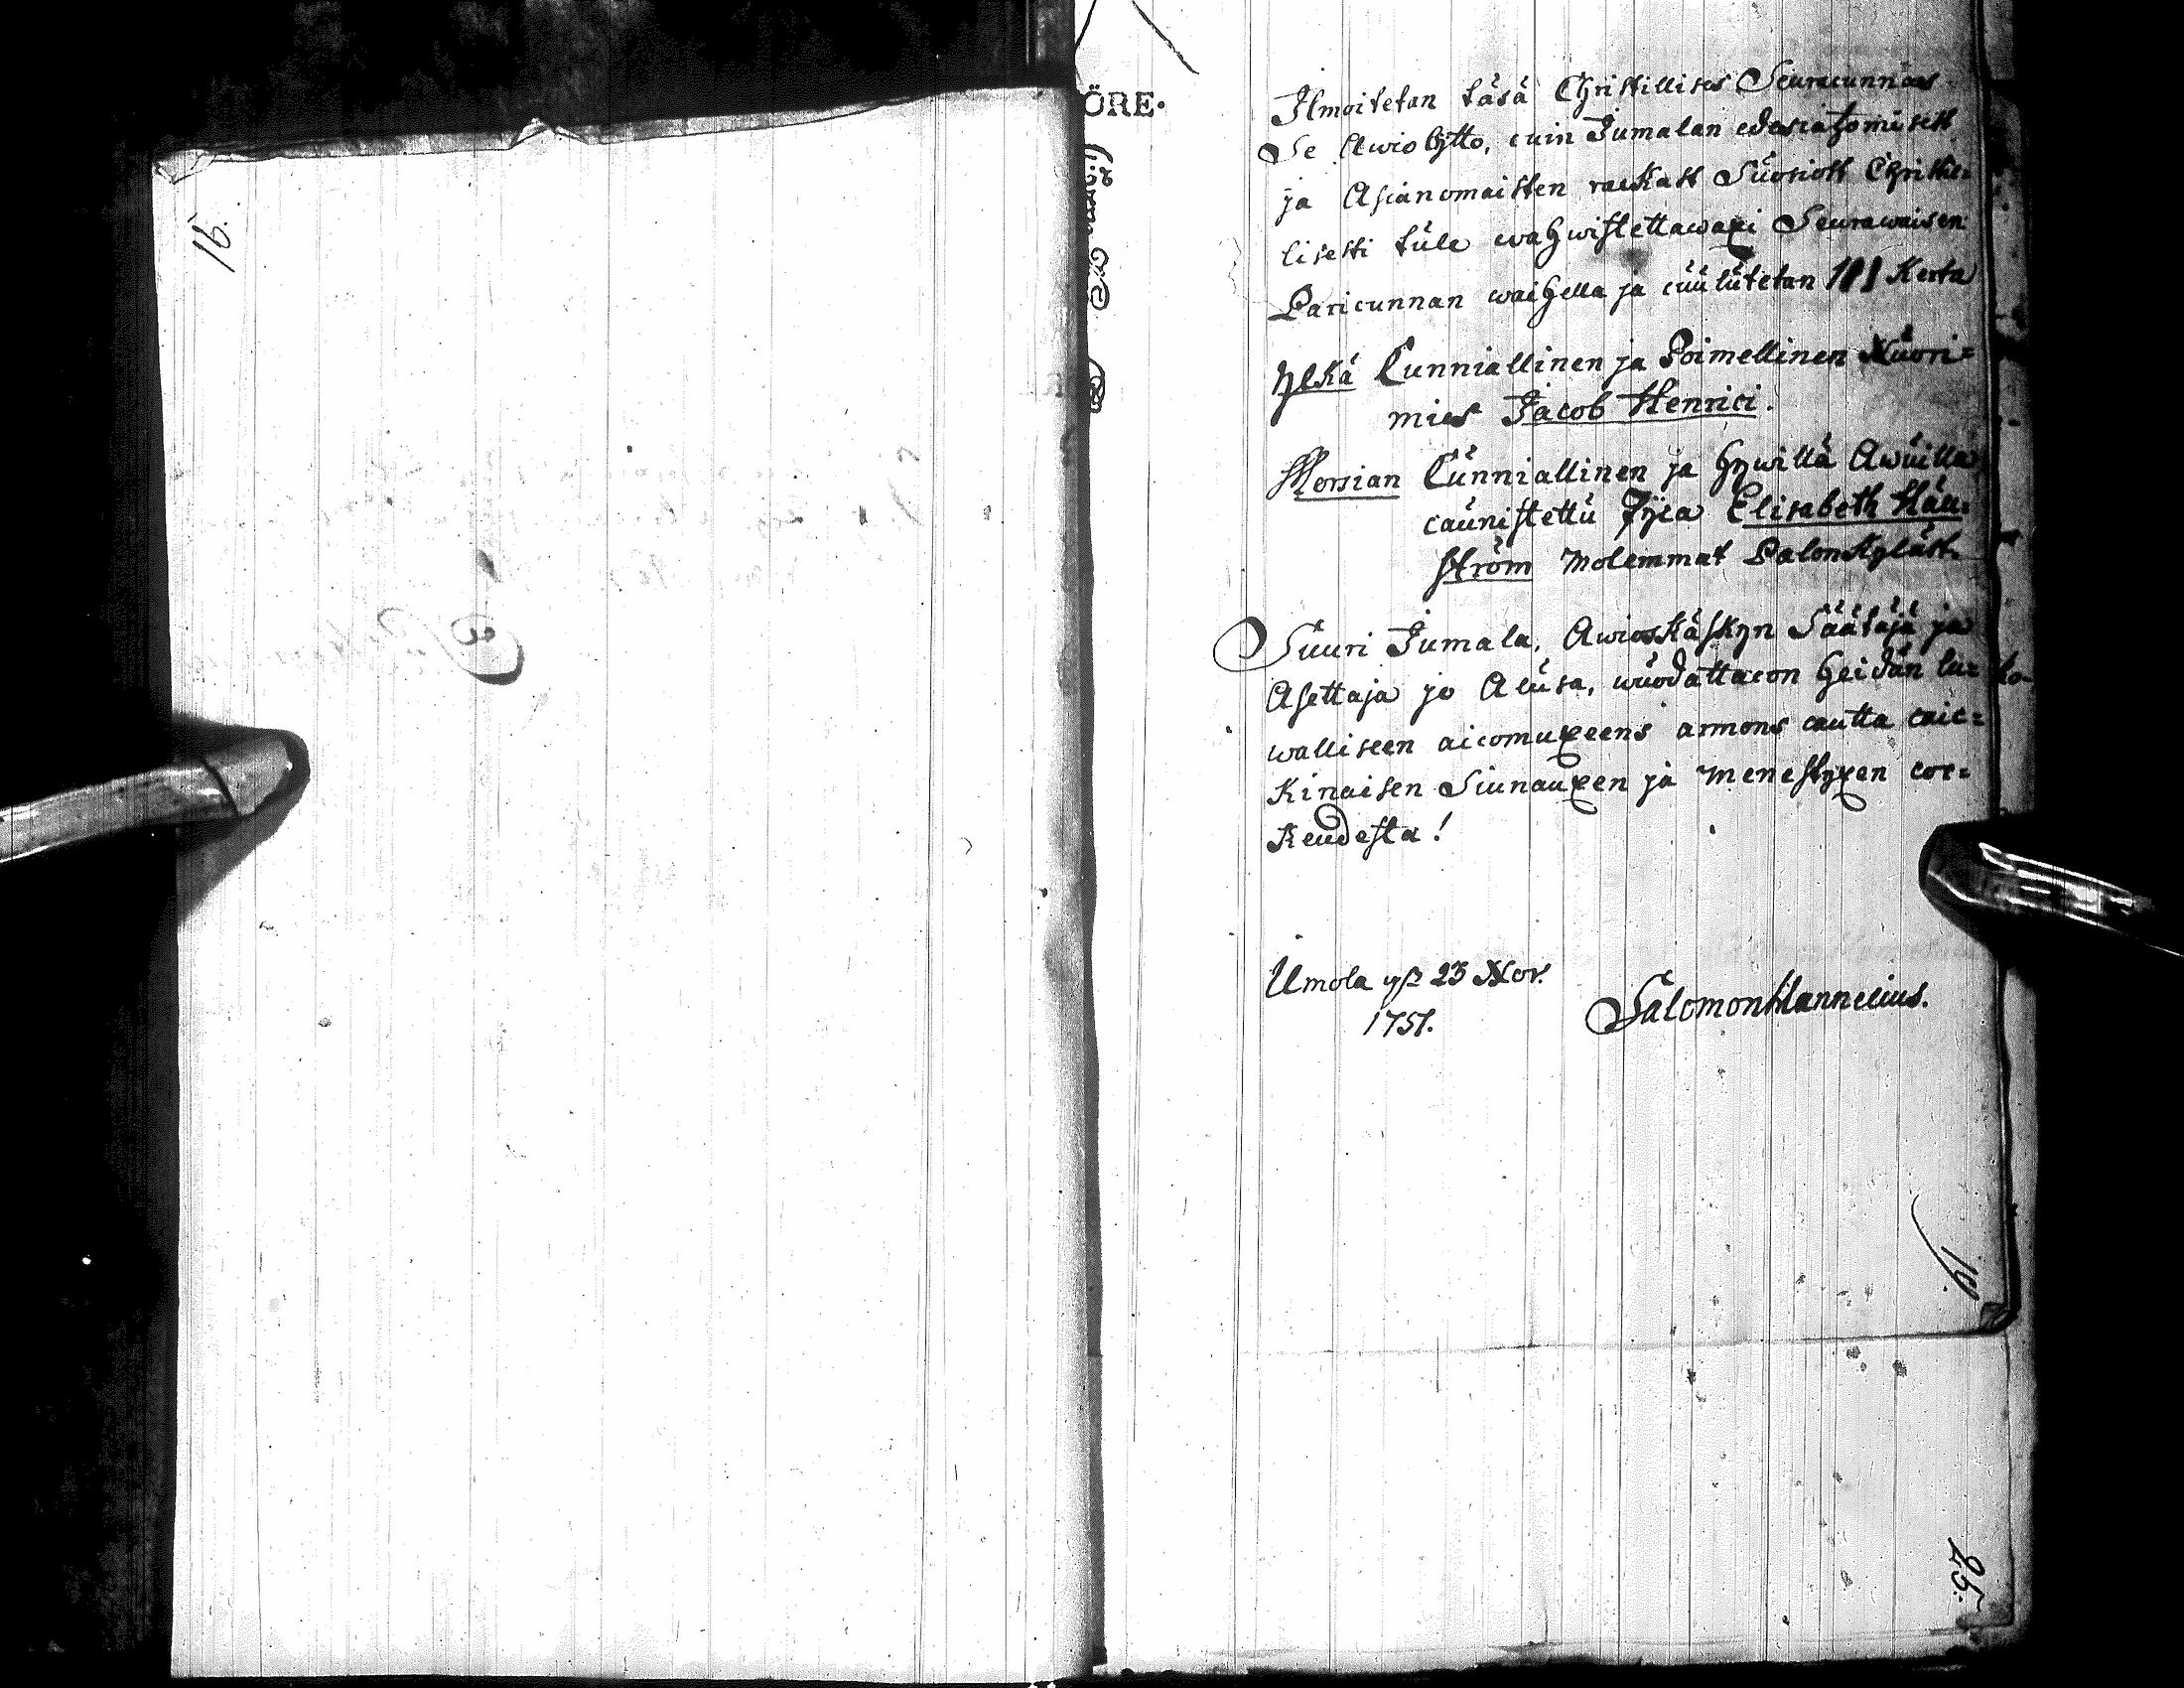 16.
ÖRE.
Ilmoitetan täsä Christillises Seuracunnas
Se Awiokytto, cuin Jumalan edesiatzomisest
ja Asianomaisten rackast Suosiost Christil=
lisesti tule wahwistettawaxi Seurawaisen
Paricunnan waihella ja cuulutetan 1 Kerta
Ylkä Cunniallinen ja Toimellinen Nuori=
mies Jacob Henrici.
Morsian Cunniallinen ja hywillä Awuilla
caunistettu Pijca Elisabeth Hän=
ström molemmat Palon Kyläst.
Suuri Jumala, Awioskäskyn Säätäjä ja
Asettaja jo Alusa, wuodattacon heidän lu= to-
walliseen aicomuxeens armons cautta caic=
kinaisen Siunauxen ja menestyxen cor=
keudesta!
Umola 23 Nov.
1751.
Salomon Hannelius.
19.
25.